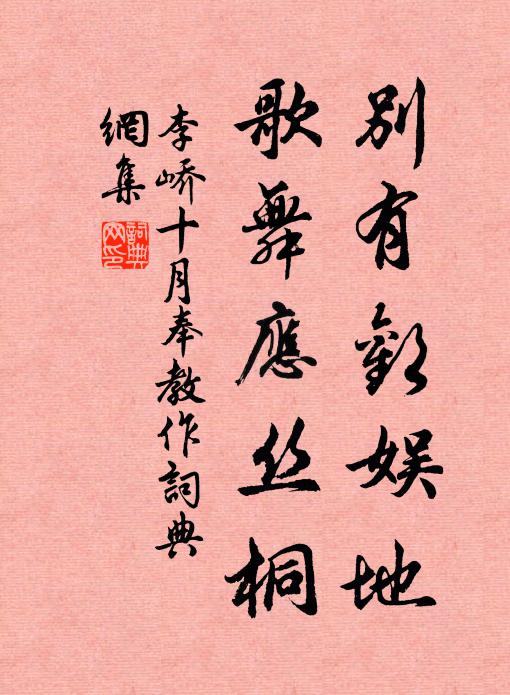 別有歡娱地
歌舞應丝桐
李嶠十月奉教作詞典
網集
詞典网印